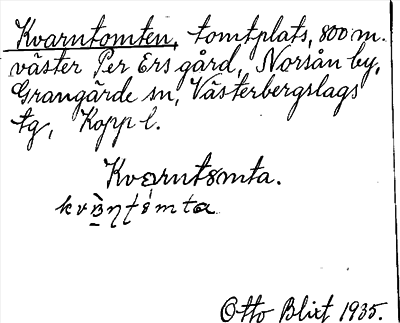 Kvarntomten, tomtplats, 800 m.
väster Per Ers gård, Norsån by,
Grangärde sn, Västerbergslags
tg, Kopp l.
Kvarntomta.
Otto Blixt 1935.